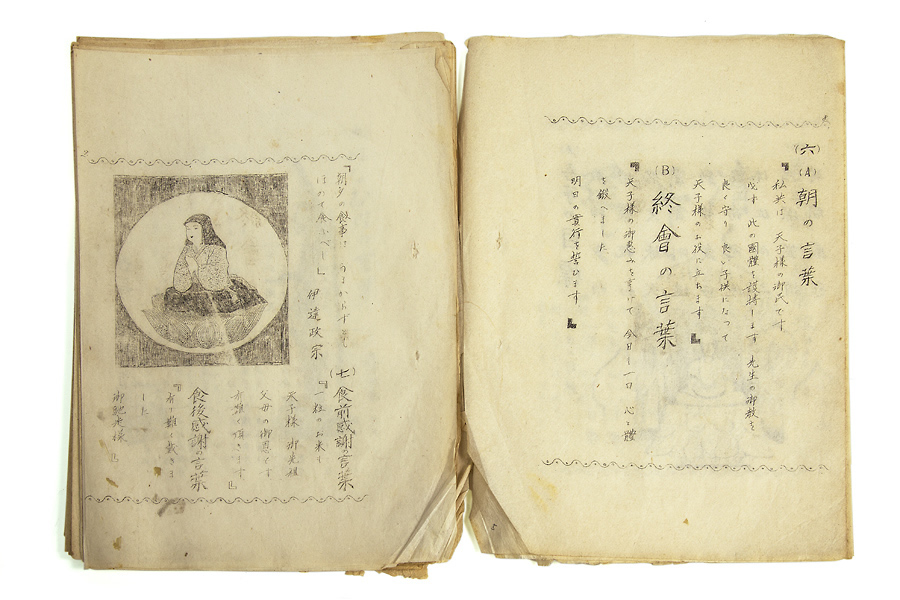 (六)(A)朝の言葉
『私共は 天子様の御民です
必ず 此の國體を護持します 先生の御教を
良く守り 良い子供になつて
天子様のお役に立ちます』
(B)終會の言葉
『天子様の御恵みを享けて 今日も一日 心と體
を鍛へました
明日の實行を誓ひます』
『朝夕の食事は うまからずとも
ほめて食ふべし』
伊達政宗
(七)食前感謝の言葉
『一粒のお米も
天子様 御先祖
父母の御恩です
有難く頂きます』
食後感謝の言葉
『有り難く戴きま
した
御馳走様』